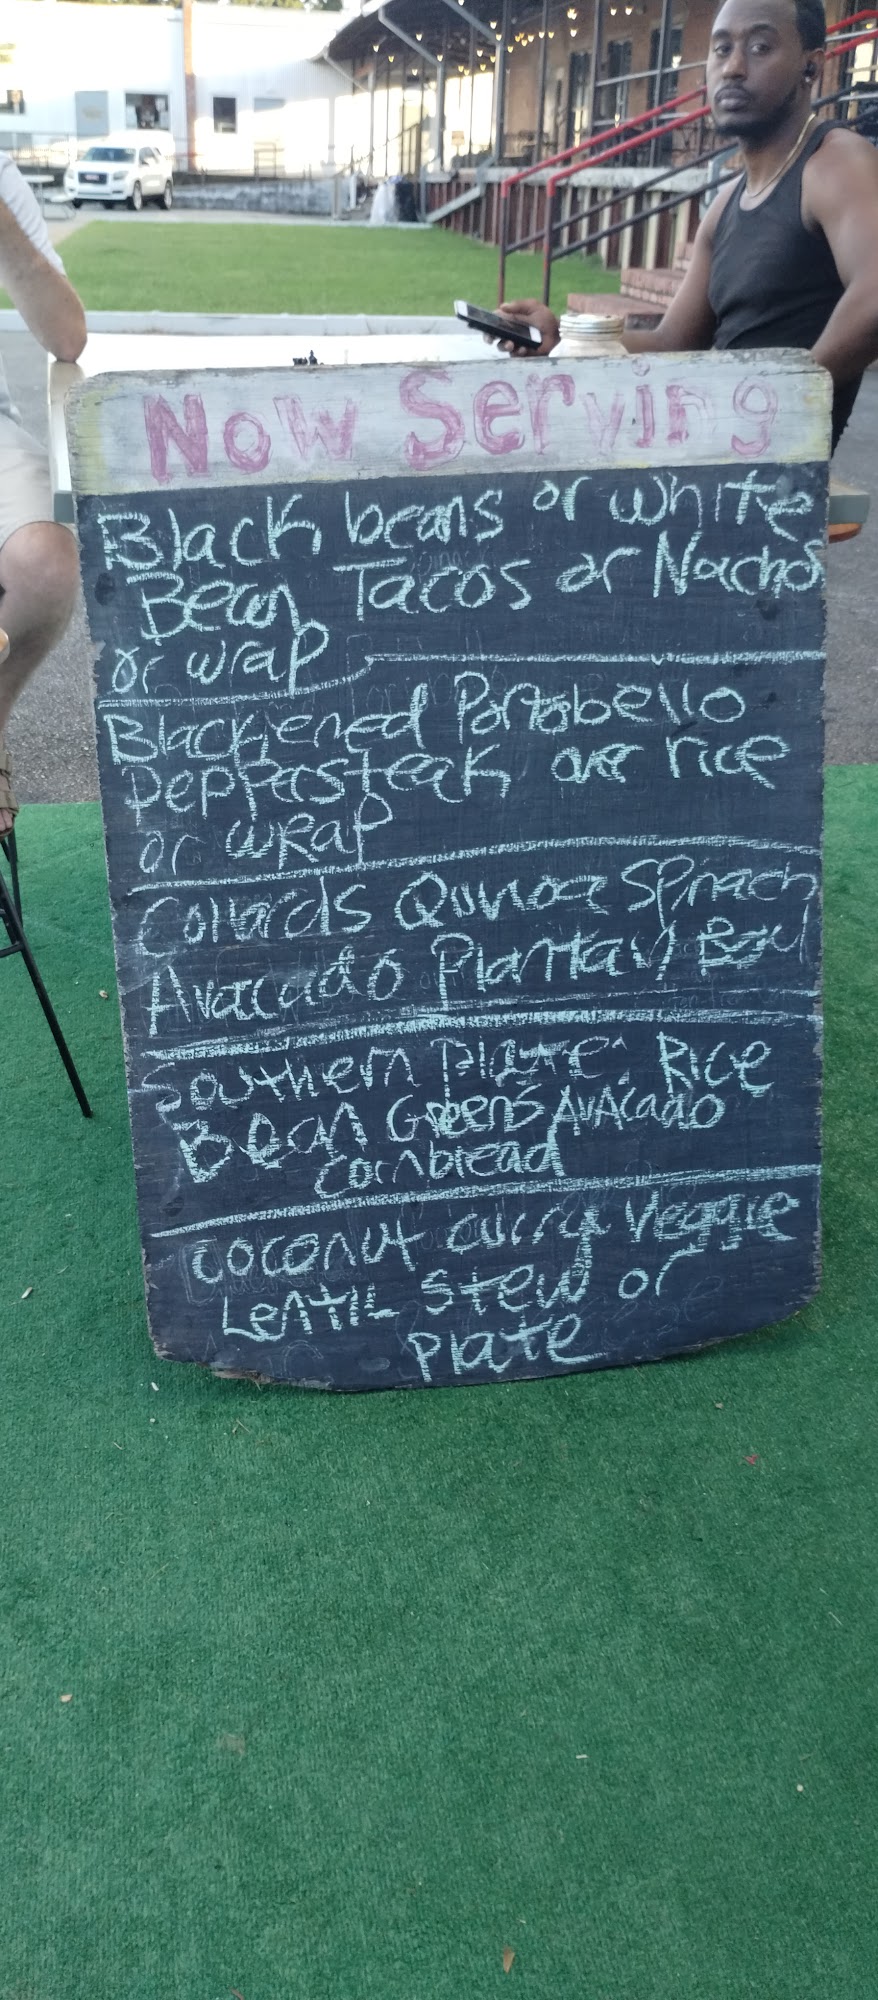 Now Serving
Black beans or white
Bean Tacos or Nachos
or wrap
Blackened Portobello
Peppersteak over rice
or wRaP
Collards Quinoa Spinach
Avacado Plantain Bowl
Southern Plate: Rice
Bean Greens AvAcado
cornbread
coconut curry Veggie
Lentil stew or
Plate